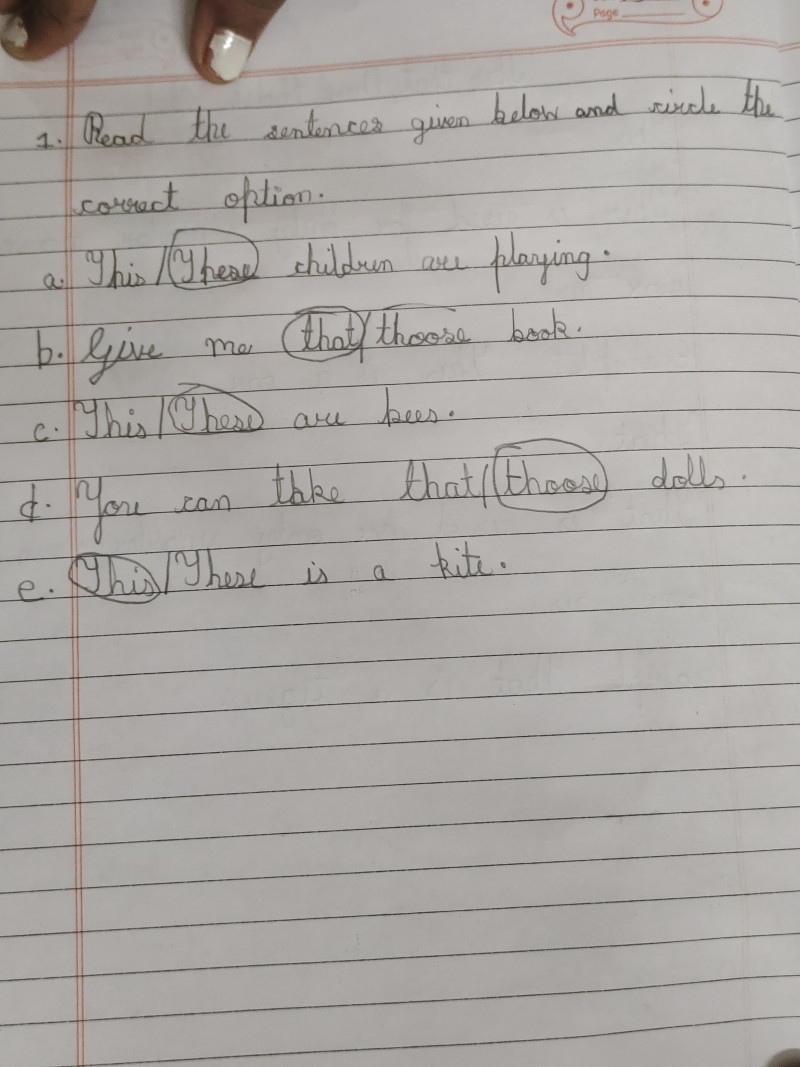 Page
1. Read the sentences given below and circle the
correct option.
a. This/These children are playing.
b. Give me that/thoose book.
c. This/These are bees.
d. You can take that/thoose dolls.
e. This/These is a kite.